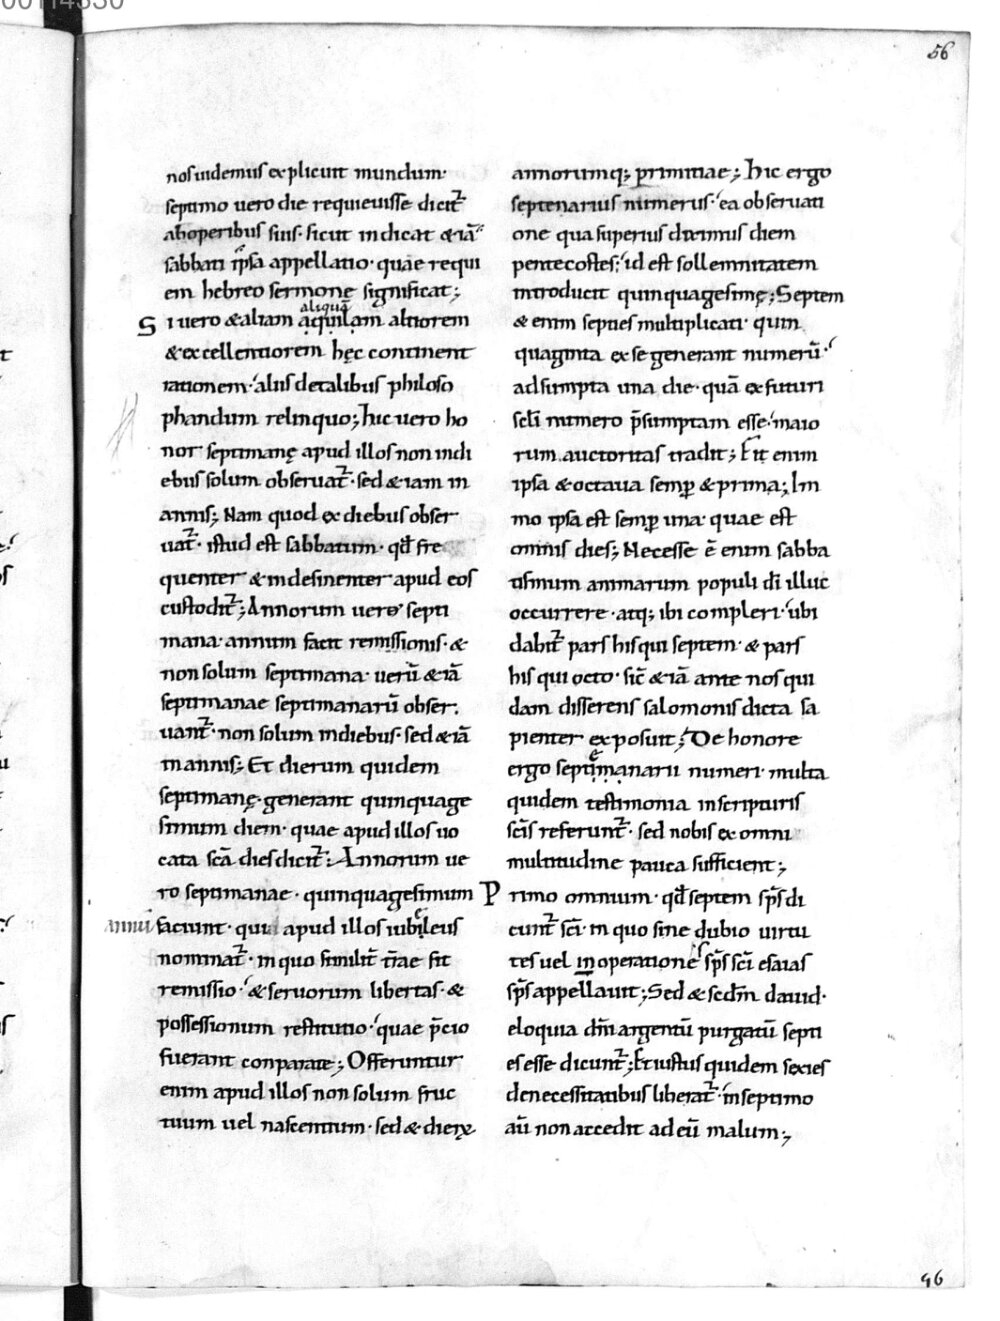 56
nos uidemus explicuit mundum·
septimo uero die requieuisse dicit᷒
ab operibus suis· sicut indicat & iā
sabbati ipsa appellatio· quae requi
em hebreo sermone significat;
aliquā
Si uero & aliam aquilam altiorem
& excellentiorem hęc continent
rationem· aliis de talibus philoso
phandum relinquo; hic uero ho
nor septimanę apud illos non in di
ebus solum obseruat᷒· sed & iam in
annis; Nam quod ex diebus obser
uat᷒· istud est sabbatum· qđ fre
quenter & indesinenter apud eos
custodit᷒; Annorum uero septi
mana· annum facit remissionis· &
non solum septimana· uerū & iā
septimanae septimanarū obser:
uant᷒· non solum in diebus· sed & iā
in annis; Et dierum quidem
septimanę· generant quinquage
simum diem· quae apud illos uo
cata scā dies dicit᷒: Annorum ue
ro septimanae· quinquagesimum
annū faciunt· qui apud illos iubileus
nominat᷒· in quo similit̄ t̄rae fit
remissio· & seruorum libertas· &
possessionum restitutio· quae p̄cio
fuerant conparate; Offeruntur
enim apud illos non solum fruc
tuum uel nascentium· sed & dierū
annorumq; primitiae; Hic ergo
septenarius numerus· ea obseruati
one qua superius diximus diem
pentecostes· id est sollemnitatem
introducit quinquagesimę; Septem
& enim septies multiplicati· quin
quaginta ex se generant numerū·
adsumpta una die· quā ex futuri
scl̄i numero p̄sumptam esse· maio
rum auctoritas tradit; Fit enim
ipsa & octaua semp̱ & prima; Im
mo ipsa est semp̱ una· quae est
omnis dies; Necesse ē enim sabba
tismum animarum populi dī illuc
occurrere· atq; ibi compleri· ubi
dabit᷒ pars his qui septem· & pars
his qui octo· sic̄ & iā ante nos qui
dam disserens salomonis dicta sa
pienter exposuit; De honore
ergo septimanarii numeri· multa
quidem testimonia in scripturis
scīs referunt᷒· sed nobis ex omni
multitudine pauca sufficient;
Primo omnium· qđ septem sp̄s di
cunt᷒ scī· in quo sine dubio uirtu
tes uel inoperationes sp̄s scī esaias
sp̄s appellauit; Sed & scdm̄ dauid·
eloquia dn̄i argentū purgatū septi
es esse dicunt᷒; Et iustus quidem sexies
de necessitatibus liberat᷒· in septimo
aū non accedit ad eū malum;
96